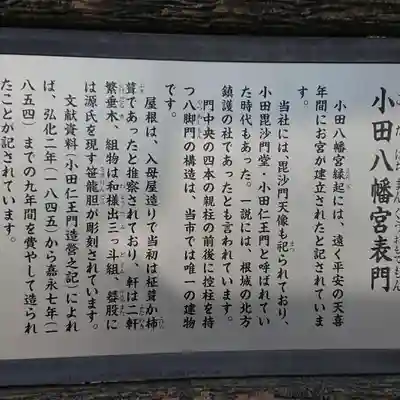 小田八幡宮表門
小田八幡宮縁起には、遠く平安の天喜
年間にお宮が建立されたと記されていま
す。
当社には、毘沙門天像も祀られており、
小田毘沙門堂・小田仁王門と呼ばれてい
た時代もあった。一説には、根城の北方
鎮護の社であったとも言われています。
門中央の四本の親柱の前後に控柱を持
つ八脚門の構造は、当市では唯一の建物
です。
屋根は、入母屋造りで当初は柾葺か杮
葺であったと推察されており、軒は二軒
繁垂木、組物は和様出三っ斗組、蟇股に
は源氏を現す笹龍胆が彫刻されています。
文献資料(小田仁王門造營之記)によれ
ば、弘化二年(一八四五)から嘉永七年(一
八五四)までの九年間を費やして造られ
たことが記されています。